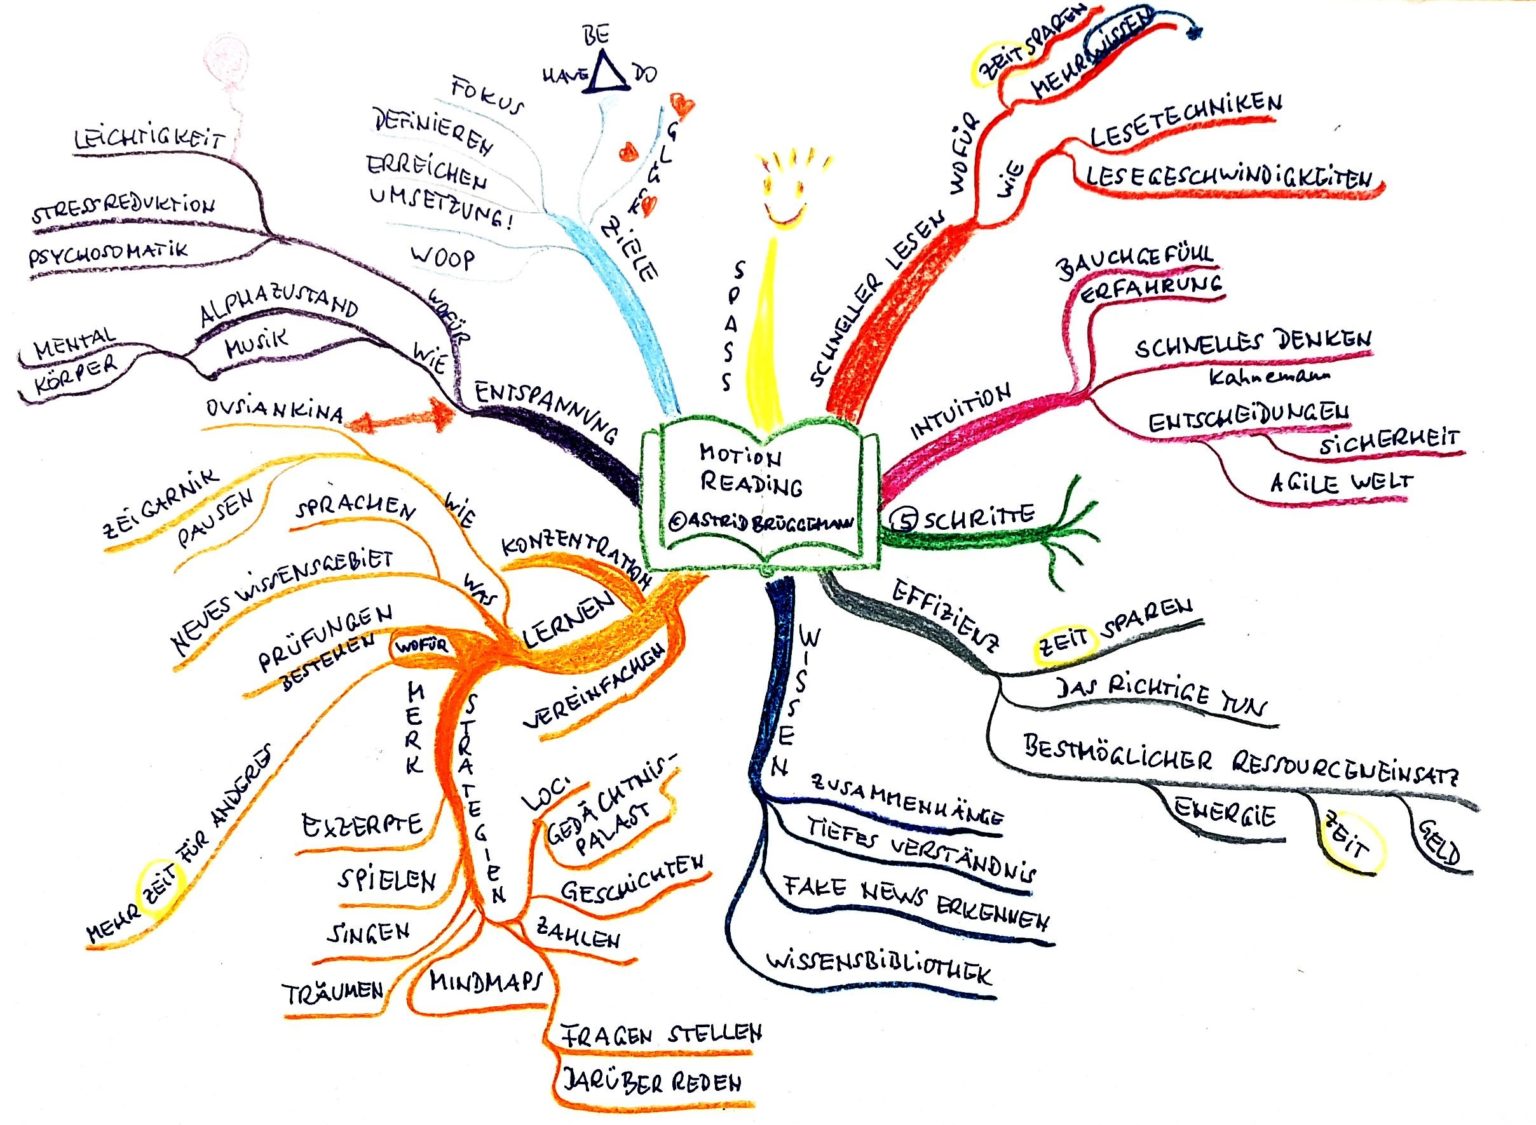 MOTION
READING
© ASTRID BRÜGGEMANN
SPASS
SCHNELLER LESEN
WOFÜR
ZEIT SPAREN
MEHR WISSEN
WIE
LESETECHNIKEN
LESEGESCHWINDIGKEITEN
INTUITION
BAUCHGEFÜHL
ERFAHRUNG
SCHNELLES DENKEN
Kahnemann
ENTSCHEIDUNGEN
SICHERHEIT
AGILE WELT
5 SCHRITTE
EFFIZIENZ
ZEIT SPAREN
DAS RICHTIGE TUN
BESTMÖGLICHER RESSOURCENEINSATZ
ENERGIE
ZEIT
GELD
WISSEN
ZUSAMMENHÄNGE
TIEFES VERSTÄNDNIS
FAKE NEWS ERKENNEN
WISSENSBIBLIOTHEK
LERNEN
KONZENTRATION
VEREINFACHEN
WIE
OVSIANKINA
ZEIGARNIK
PAUSEN
WAS
SPRACHEN
NEUES WISSENSGEBIET
WOFÜR
PRÜFUNGEN
BESTEHEN
MEHR ZEIT FÜR ANDERES
MERK
STRATEGIEN
EXZERPTE
SPIELEN
SINGEN
TRÄUMEN
MINDMAPS
LOC.
GEDÄCHTNIS-
PALAST
GESCHICHTEN
ZAHLEN
FRAGEN STELLEN
DARÜBER REDEN
ENTSPANNUNG
WOFÜR
LEICHTIGKEIT
STRESSREDUKTION
PSYCHOSOMATIK
WIE
ALPHAZUSTAND
MUSIK
MENTAL
KÖRPER
ZIELE
FOKUS
DEFINIEREN
ERREICHEN
UMSETZUNG!
WOOP
BE
HAVE DO
GLÜCK